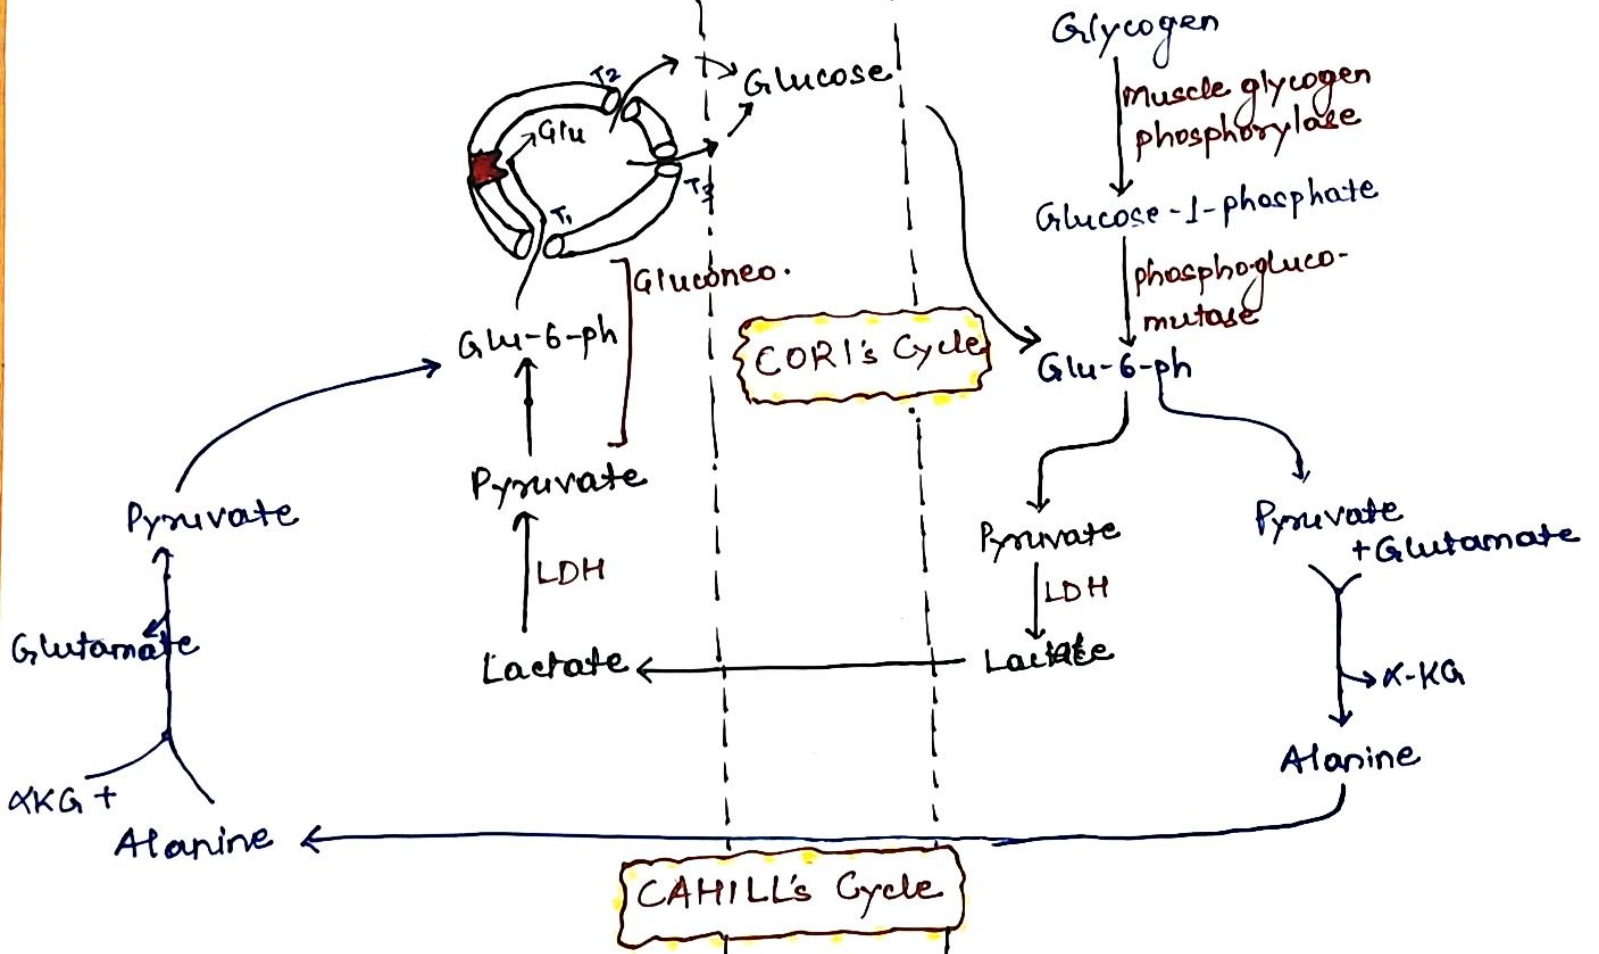 Glycogen
Muscle glycogen
phosphorylase
Glucose-1-phosphate
phosphogluco-
mutase
Glu-6-ph
T2
Glu
T1
T3
Glucose
Gluconeo.
Glu-6-ph
CORI's Cycle
Pyruvate
LDH
Lactate
Pyruvate
LDH
Lactate
Pyruvate
+Glutamate
α-KG
Alanine
Pyruvate
Glutamate
αKG +
Alanine
CAHILL's Cycle